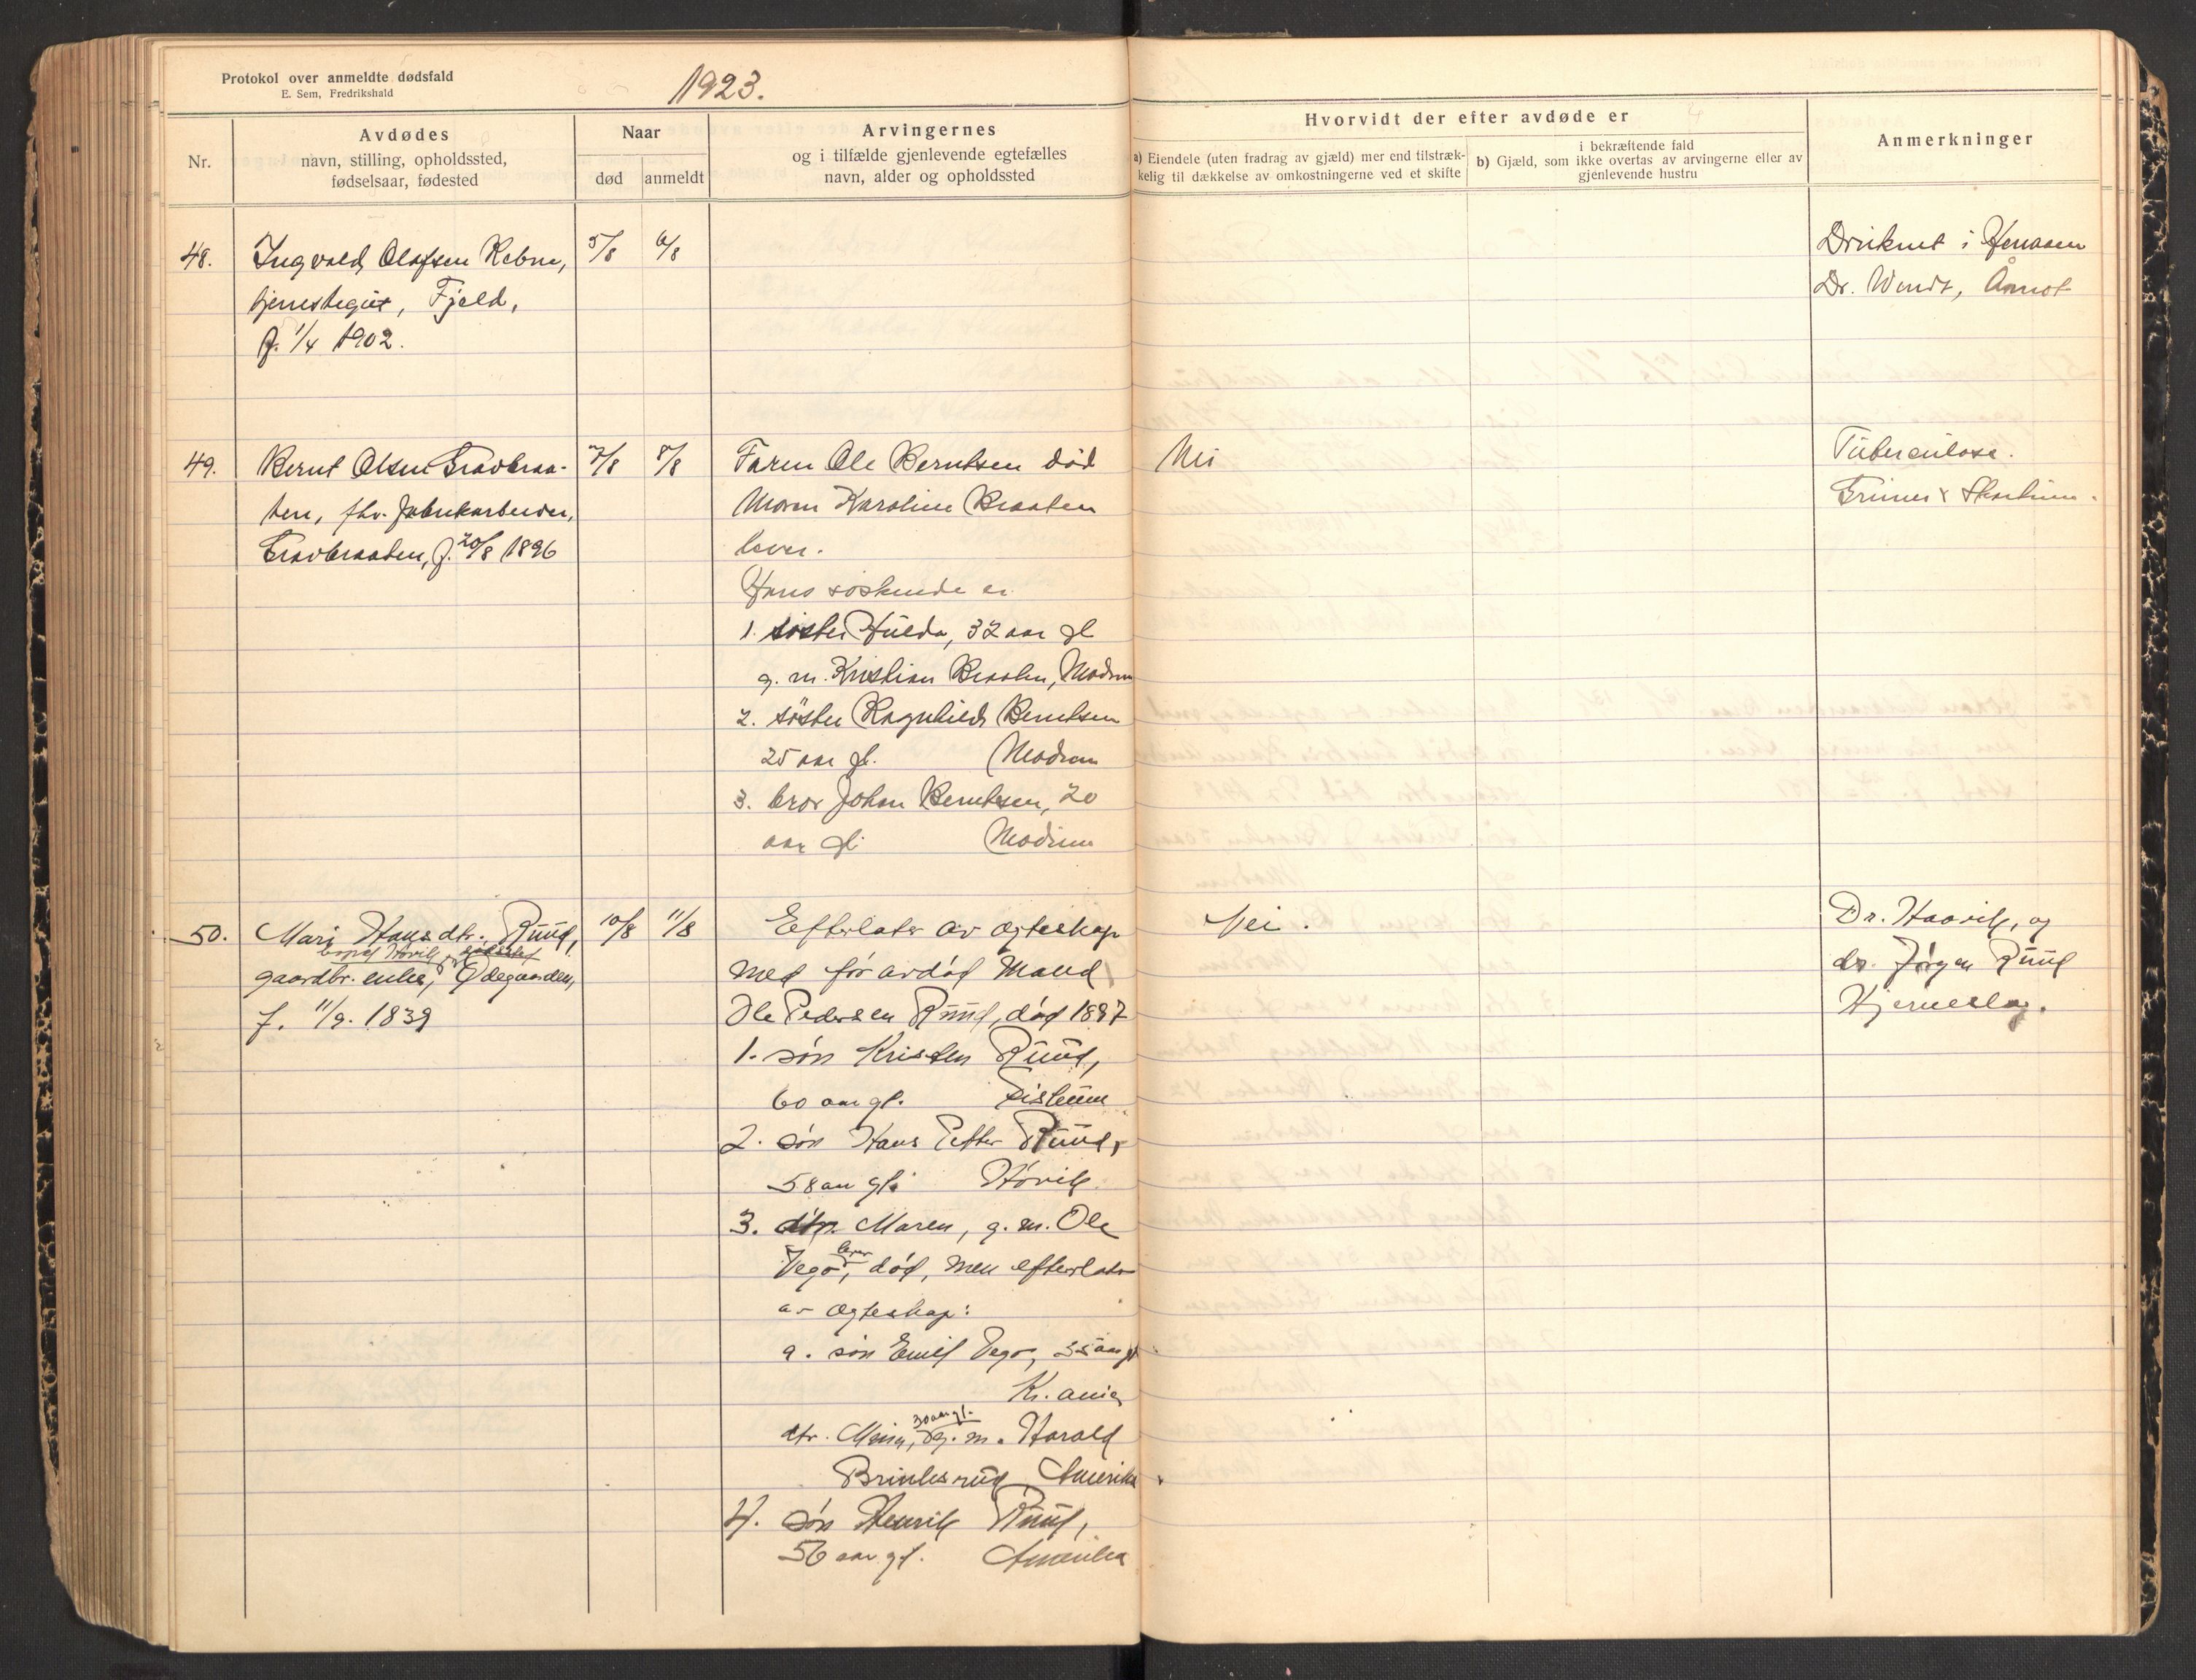 Protokol over anmeldte dødsfald
E. Sem, Fredrikshald
1923.
Nr.
Avdødes
navn, stilling, opholdssted,
fødselsaar, fødested
Naar
død
anmeldt
Arvingernes
og i tilfælde gjenlevende egtefælles
navn, alder og opholdssted
Hvorvidt der efter avdøde er
a) Eiendele (uten fradrag av gjæld) mer end tilstræk-
kelig til dækkelse av omkostningerne ved et skifte
i bekræftende fald
b) Gjæld, som ikke overtas av arvingerne eller av
gjenlevende hustru
Anmerkninger
48.
Ingvald Olafsen
tjenestegut, Fjeld,
f. 1/4 1902.
5/8
6/8
Druknet i
Dr. Wendt, Åmot
49.
Bernt Olsen Gravbraa-
ten, fhv. fabrikarbeider,
Gravbraaten, f. 20/8 1896
7/8
8/8
Faren Ole Berntsen død
Moren Karoline Braaten
lever.
Hans søskende er
1. søster Hulda, 32 aar gl
g. m. Kristian Braaten, Modum
2. søster Ragnhild Berntsen
25 aar gl. Modum
3. bror Johan Berntsen, 20
aar gl. Modum
Nei
Tuberculose.
50.
Mari Hansdtr. Ruud,
gaardbr. enke, Ødegaarden,
f. 11/9. 1839
10/8
11/8
Efterlater av egteskap
med før avdød Mand
Ole Pedersen Ruud, død 1887
1. søn Kristen Ruud,
60 aar gl. Fiskum
2. søn Hans Petter Ruud,
58 aar gl. Høvik
3. dtr. Maren, g. m. Ole
lever
Vego, død, men efterlater
av egteskap:
a. søn Emil Vego, 35 aar gl
Kr.ania
30 aar gl.
dtr. g. m. Harald
Amerika
4. søn Henrik Ruud,
56 aar gl. Amerika
Nei.
Dr. Haavik, og
dr. Jørgen Ruud
Hjerneslag.